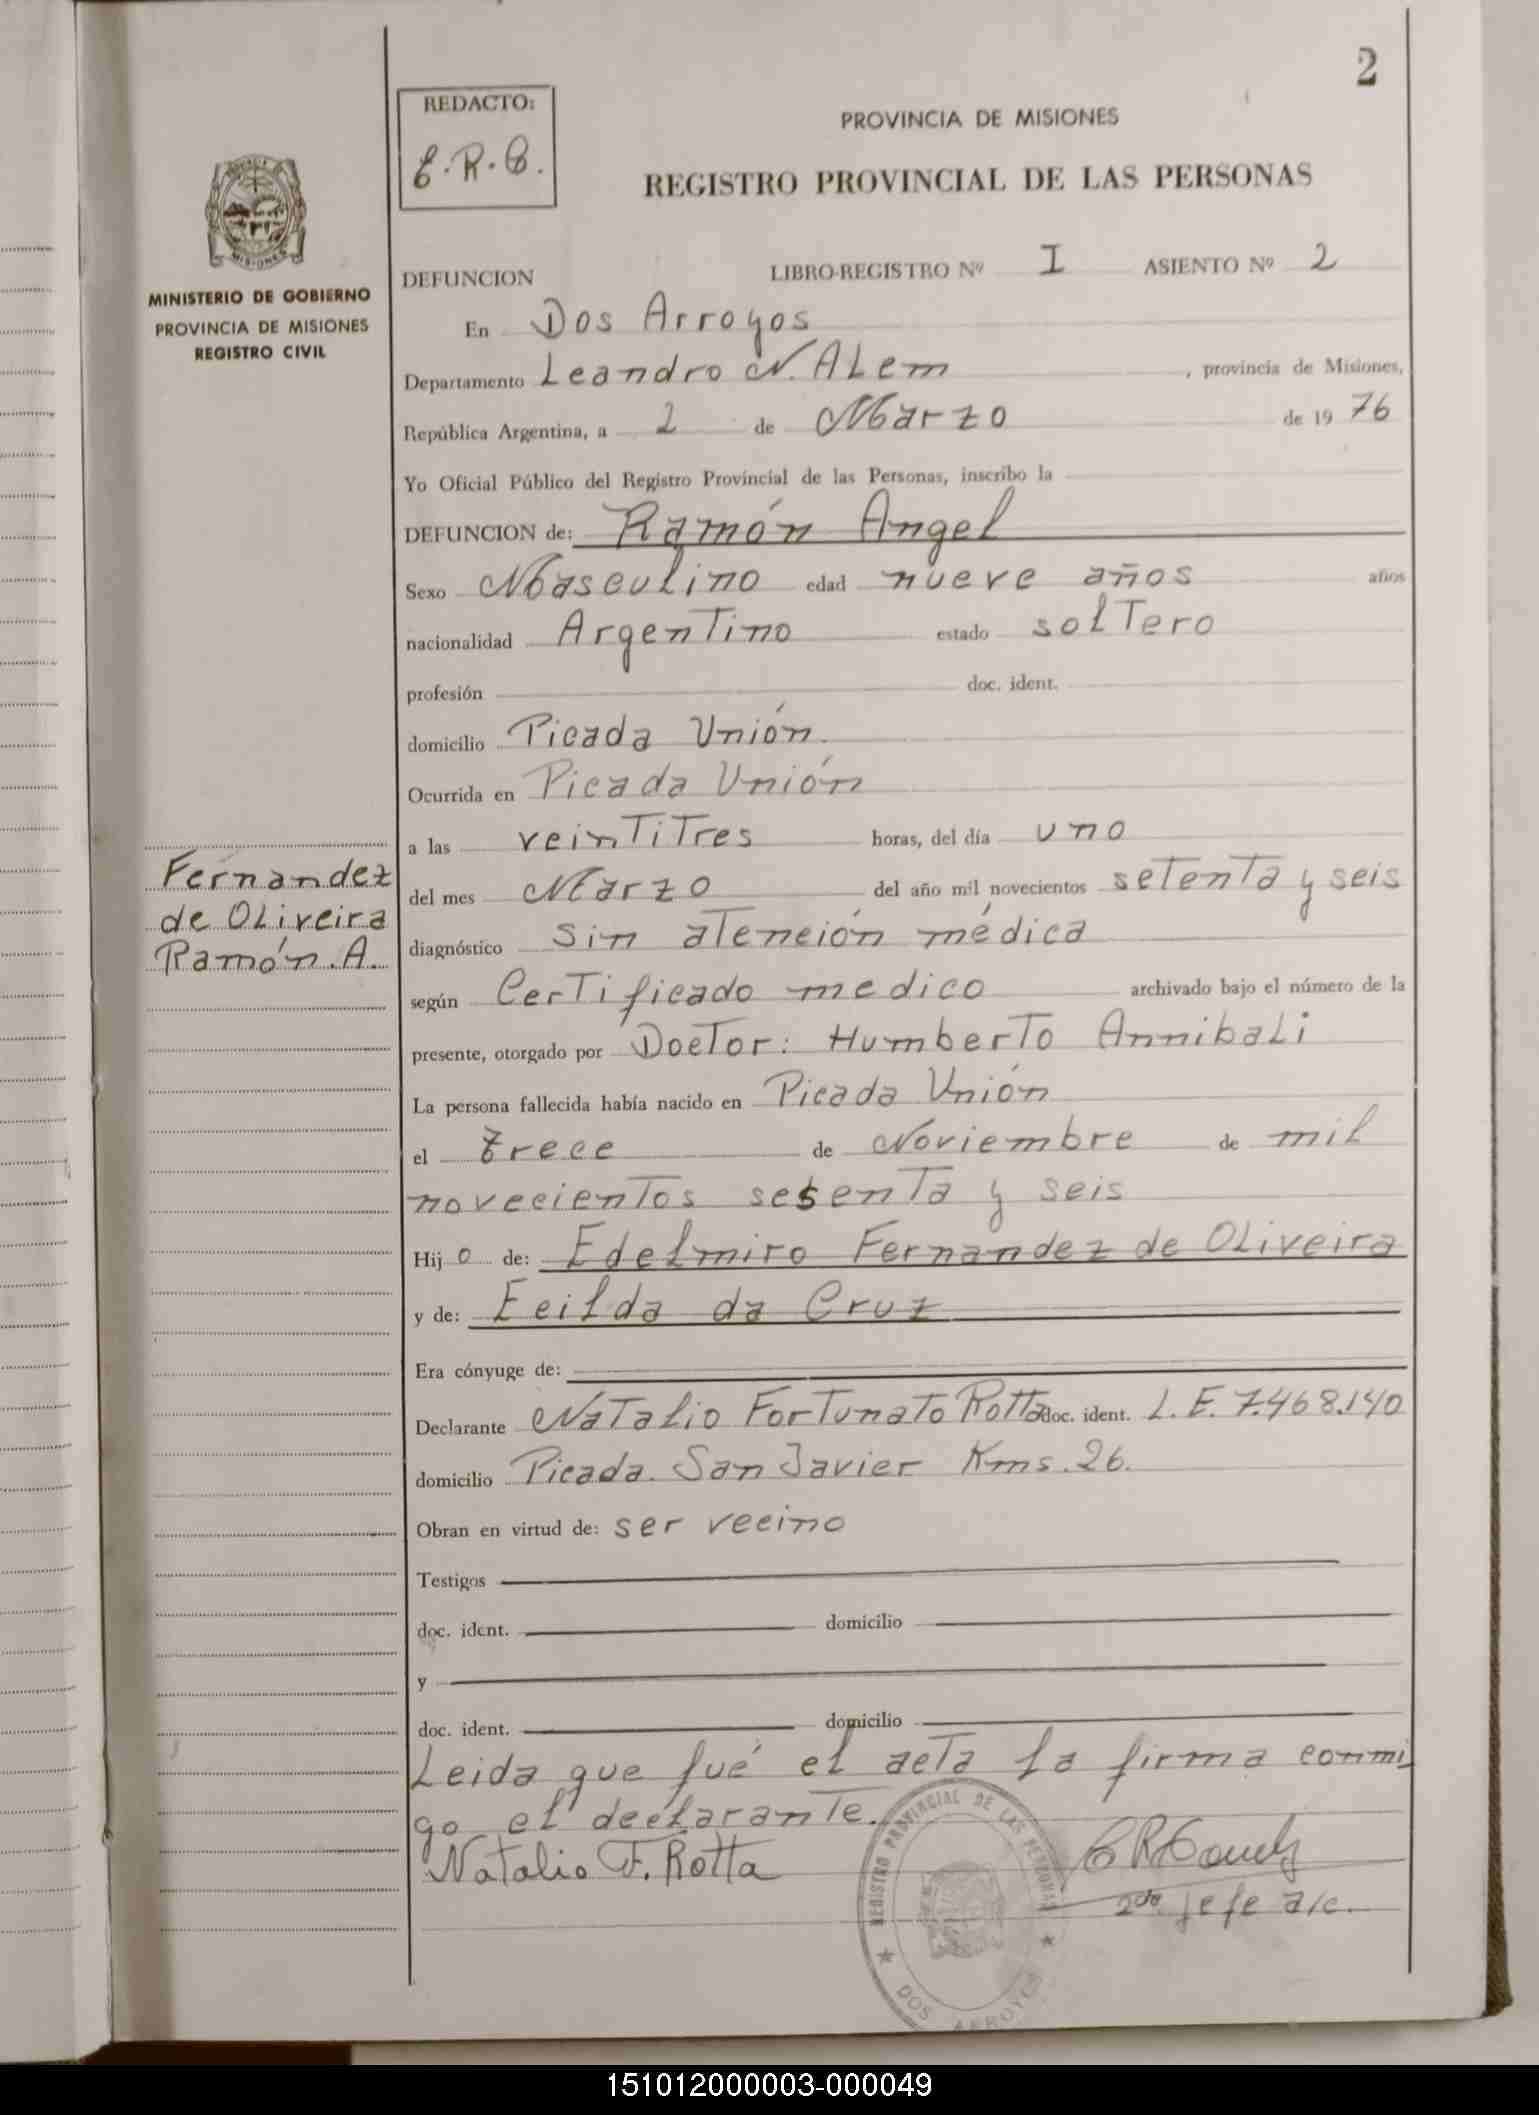 2
REDACTO:
E.R.C.
PROVINCIA DE MISIONES
REGISTRO PROVINCIAL DE LAS PERSONAS
MINISTERIO DE GOBIERNO
PROVINCIA DE MISIONES
REGISTRO CIVIL
DEFUNCION LIBRO-REGISTRO Nº I ASIENTO Nº 2
En Dos Arroyos
Departamento Leandro N. ALem, provincia de Misiones,
República Argentina, a 2 de Marzo de 19 76
Yo Oficial Público del Registro Provincial de las Personas, inscribo la
DEFUNCION de: Ramón Angel
Sexo Masculino edad nueve años años
nacionalidad Argentino estado solTero
profesión doc. ident.
domicilio Picada Unión.
Ocurrida en Picada Unión
a las veinTiTres horas, del día uno
Fernandez
de OLiveira
Ramón. A.
del mes Marzo del año mil novecientos setenta y seis
diagnóstico sin atención médica
según Certificado medico archivado bajo el número de la
presente, otorgado por Doctor: Humberto Annibali
La persona fallecida había nacido en Picada Unión
el trece de Noviembre de mil
novecientos sesenta y seis
Hij o de: Edelmiro Fernandez de OLiveira
y de: Eeilda da Cruz
Era cónyuge de:
Declarante Natalio Fortunato Rotta doc. ident. L.E. 7.468.140
domicilio Picada. San Javier Kms. 26.
Obran en virtud de: ser vecino
Testigos
doc. ident. domicilio
y
doc. ident. domicilio
Leida que fué el acta la firma conmi
go el declarante.
Natalio F. Rotta
2do jefe a/c.
REGISTRO PROVINCIAL DE LAS PERSONAS
DOS ARROYOS
151012000003-000049